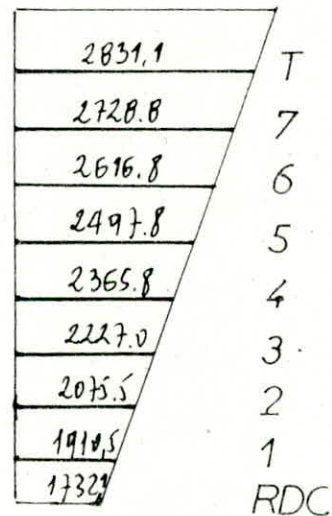 2831,1 T
2728.8 7
2616.8 6
2497.8 5
2365.8 4
2227.0 3
2075.5 2
1910,5 1
RDC